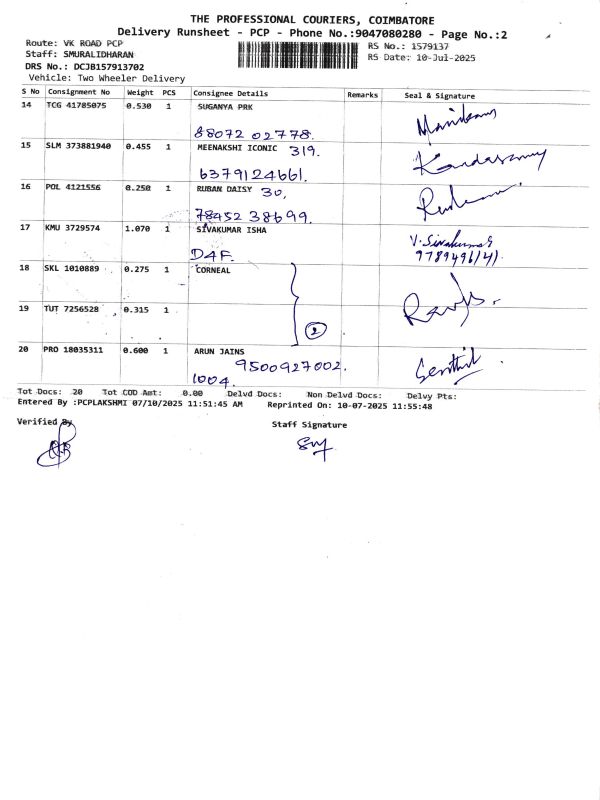 THE PROFESSIONAL COURIERS, COIMBATORE
Delivery Runsheet - PCP - Phone No.:9047080280 - Page No.:2
Route: VK ROAD PCP
Staff: SMURALIDHARAN
DRS No.: DCJB157913702
Vehicle: Two Wheeler Delivery
RS No.: 1579137
RS Date: 10-Jul-2025
S No Consignment No Weight PCS Consignee Details Remarks Seal & Signature
14 TCG 41785075 0.530 1 SUGANYA PRK
88072 02778.
15 SLM 373881940 0.455 1 MEENAKSHI ICONIC 319.
6379124661. Kandasamy
16 POL 4121556 0.250 1 RUBAN DAISY 30,
78452 38699.
17 KMU 3729574 1.070 1 SIVAKUMAR ISHA V. Sivakumar
D4F. 9789496141.
18 SKL 1010889 0.275 1 CORNEAL
19 TUT 7256528 0.315 1
2
20 PRO 18035311 0.600 1 ARUN JAINS
9500927002. Senthil
1004.
Tot Docs: 20 Tot COD Amt: 0.00 Delvd Docs: Non Delvd Docs: Delvy Pts:
Entered By :PCPLAKSHMI 07/10/2025 11:51:45 AM Reprinted On: 10-07-2025 11:55:48
Verified By
Staff Signature